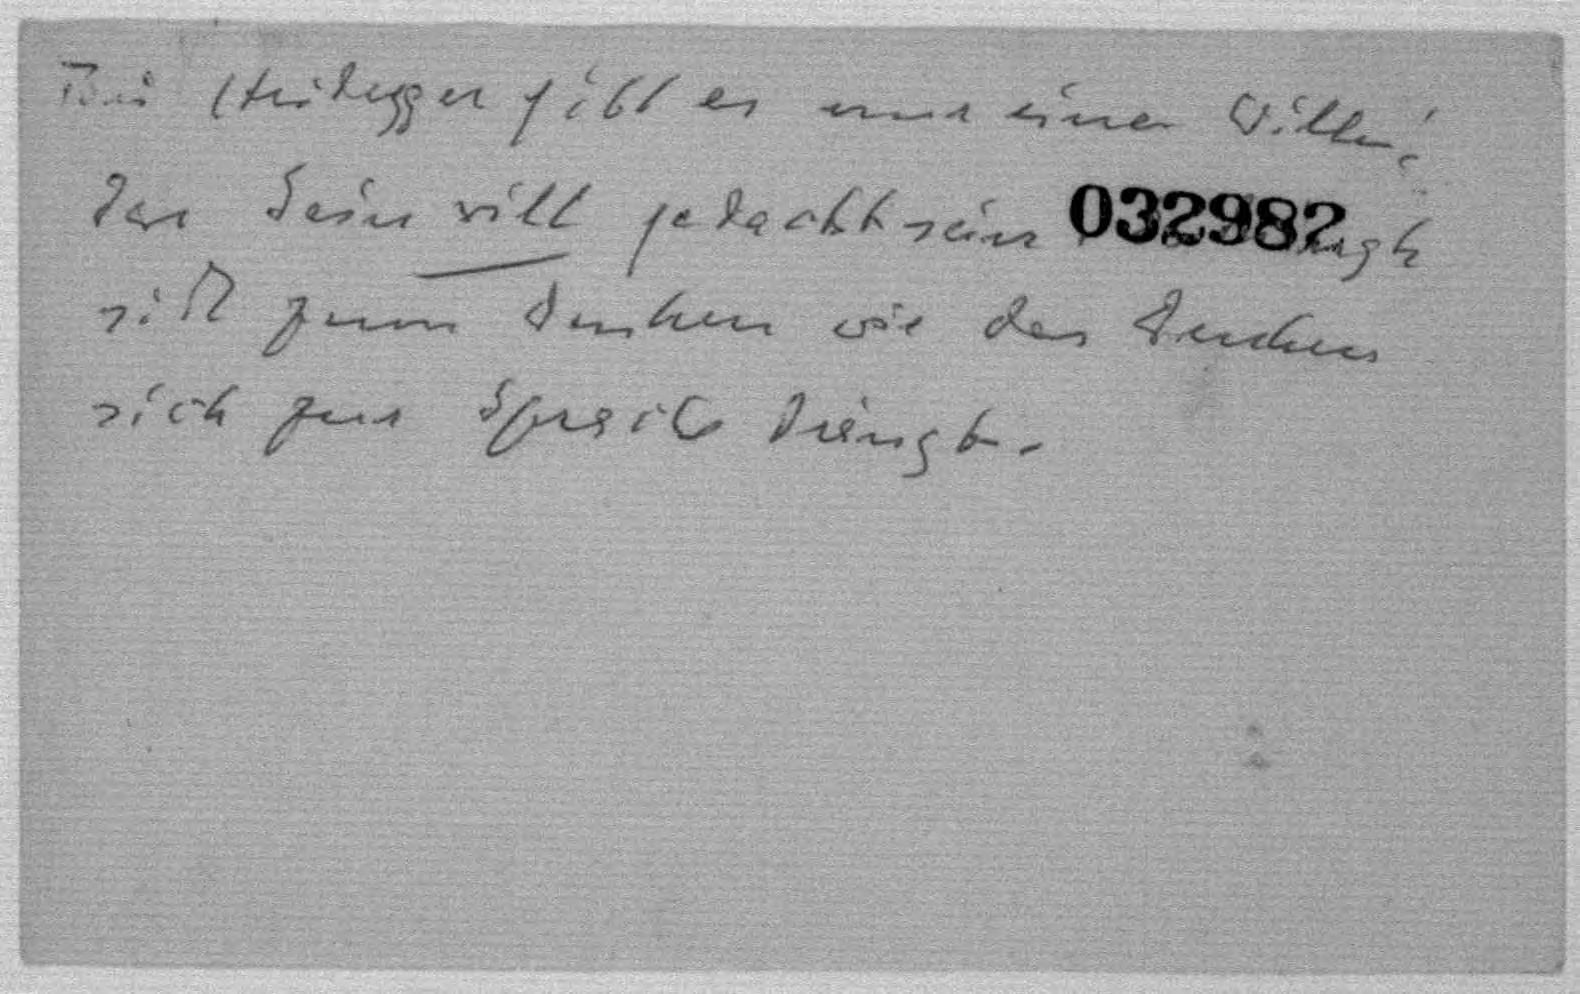 Bei Heidegger gibt es nur einen Willen:
das Sein will gedacht sein 032982
sich zum Denken wie das Denken
sich zur Sprache drängt.